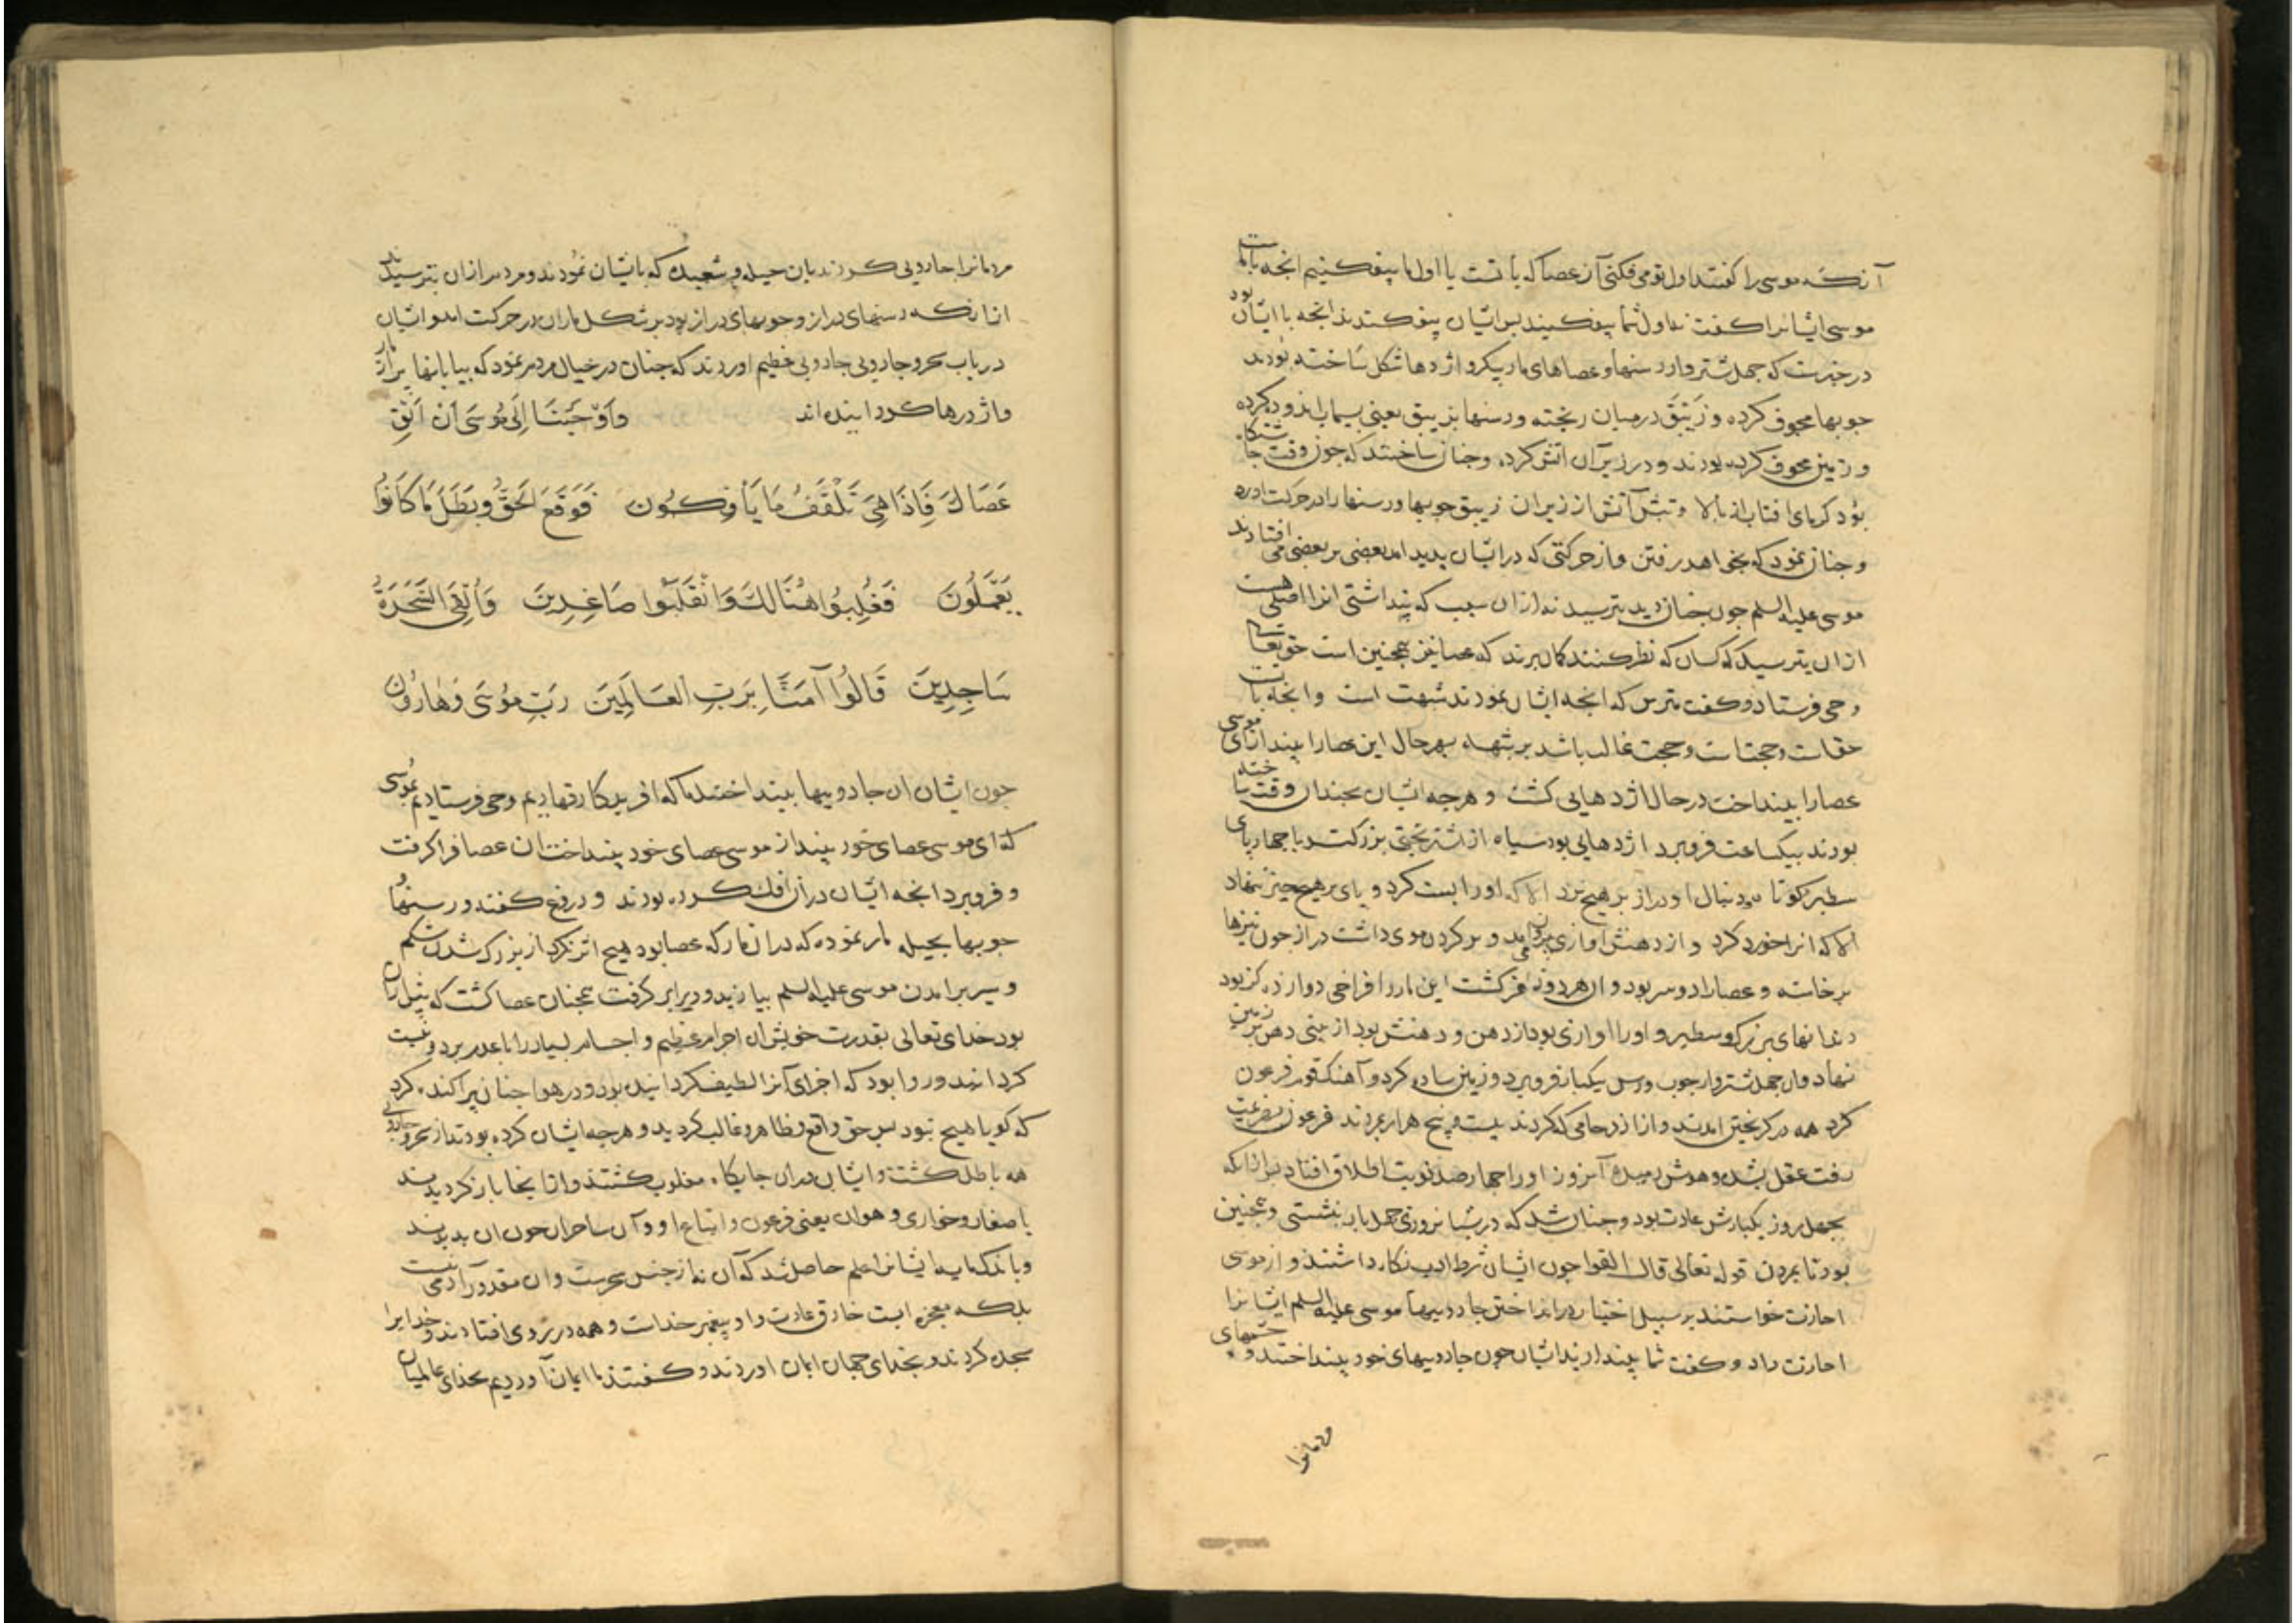 آنکه موسی را کفتند اول تو می فکنی آن عصا که با تست یا اول ما بیفکنیم انجه با ماست
موسی ایشانرا کفت نه اول شما بیفکنید بس ایشان بیفکندند انجه با ایشان بود
در خبرست که جهل شتروار رسنها و عصاهای مار پیکر و اژدها شکل ساخته بودند
جوبها مجوف کرده و زیبق در میان ریخته و رسنها بزیبق یعنی بسیماب اندوده کرده
و زمین مجوف کرده بودند و در زیر آن اتش کرده و جنان ساختند که جون وقت جاشتکاه
بود کرمای افتاب از بالا و تبش آتش از زیر ان زیبق جوبها و رسنها را در حرکت اورد
و جنان نمود که بخواهد رفتن و از حرکتی که در ایشان بدید امد بعضی بر بعضی می افتادند
موسی علیه السلم جون جنان دید بترسید نه از ان سبب که بنداشتی انرا اصلی هست
از ان بترسید که کسان که نظر کنند کمان برند که عصا نیز همجنین است حق تعالی
وحی فرستاد و کفت مترس که انجه ایشان نمودند شبهت است و انجه با تست
حقات و حجتات و حجت غالب باشد بر شبهه بهر حال این عصا را بینداز ای موسی
عصا را بینداخت در حال اژدهایی کشت و هرجه ایشان بجندان وقت ساخته
بودند بیکساعت فروبرد اژدهایی بود سیاه از شتر بختی بزرکتر با جهار پای
سطبر کوتا و دنبال او دراز بر هیج نزد الا که اورا بست کرد و پای بر هیج جیز ننهاد
الا که انرا خورد کرد و از دهنش اوازی می بیرون امد و بر کردن موی داشت دراز جون نیزها
برخاسته و عصا را دو سر بود و ان هر دو فز کشت این مار را فراخی دوازده کز بود
دندانهای بزرک و سطبر و اورا اوازی بود از دهن و دهنش بود از بینی دهن بر زمین
نهاد و ان جهل شتروار جوب و رسن یکبار فروبرد و زمین ساده کرد و آهنک قوم فرعون
کرد همه در کریختن امدند و از ان زحامی که کردند بیست و پنج هزار بمردند فرعون بهزیمت
رفت عقل بشده و هوش رمیده آنروز اورا جهارصد نوبت اطلاق افتاد بس از انکه
بجهل روز یکبارش عادت بود و جنان شد که در شبانروزی جهل بار بنشستی و همجنین
بود تا بمردن قوله تعالی قال القوا جون ایشان شرط ادب نکاه داشتند و از موسی
اجازت خواستند بر سبیل اختیار در انداختن جادویها موسی علیه السلم ایشانرا
اجازت داد و کفت شما بیندازید ایشان جون جادویهای خود بینداختند و جشمهای
مردمانرا
مردمانرا جادویی کردند بان حیله و شعبده که بایشان نمودند و مردم از ان بترسیدند
از انکه رسنهای دراز و جوبهای دراز بود بر شکل ماران در حرکت امد و ایشان
در باب سحر و جادویی جادویی عظیم اوردند که جنان در خیال مردم نمود که بیابانها بر از مار
و اژدرها کردانیده اند وَاَوْحَيْنَا اِلَى مُوسَى اَنْ اَلْقِ
عَصَاكَ فَاِذَا هِيَ تَلْقَفُ مَا يَأْفِكُونَ فَوَقَعَ الْحَقُّ وَبَطَلَ مَا كَانُوا
يَعْمَلُونَ فَغُلِبُوا هُنَالِكَ وَانْقَلَبُوا صَاغِرِينَ وَاُلْقِيَ السَّحَرَةُ
سَاجِدِينَ قَالُوا آمَنَّا بِرَبِّ الْعَالَمِينَ رَبِّ مُوسَى وَهَارُونَ
جون ایشان ان جادویها بینداختند ما که افریدکار قهاریم وحی فرستادیم بموسی
که ای موسی عصای خود بینداز موسی عصای خود بینداخت ان عصا فراکرفت
و فروبرد انجه ایشان در ان افک کرده بودند و دروغ کفتند و رسنها و
جوبها بحیله مار نموده که در ان مار که عصا بود هیج اثر نکرد از بزرک شدن شکم
و سیر برامدن موسی علیه السلم بیازید و دیر ابر کرفت همجنان عصا کشت که بیش از ان
بود خدای تعالی بقدرت خویش ان اجرام عظیم و اجسام بسیار را با عدم برد و نیست
کردانید و روا بود که اجزای آنرا لطیف کردانیده بود و در هوا جنان براکنده کرد
که کویا هیج نبود بس حق واقع و ظاهر و غالب کردید و هرجه ایشان کرده بودند از سحر و جادویی
همه باطل کشت و ایشان در ان جایکاه مغلوب کشتند و از انجا باز کردیدند
با صغار و خواری و هوان یعنی فرعون و اتباع او و آن ساحران جون ان بدیدند
و باندک مایه ایشانرا علم حاصل شد که آن نه از جنس سحرست و ان مقدور آدمی نیست
بلکه معجزه ایست خارق عادت و او پیغمبر خداست و همه در بر روی افتادند و خدایرا
سجده کردند و بخدای جهان ایمان اوردند و کفتند ما ایمان آوردیم بخدای عالمیان